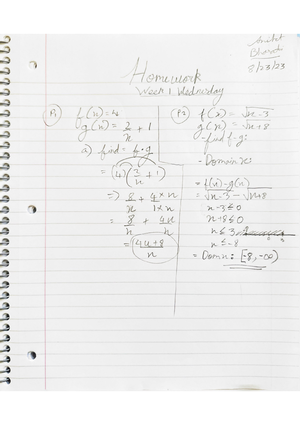 8/23/23
Homework
Week 1 Wednesday
P1 f(x) = 4
g(x) = 2/x + 1
a) find = f·g
= (4)(2/x + 1)
=> 8/x + 4×x/1×x
= 8/x + 4x/x
= 4x+8/x
P2 f(x) = √x-3
g(x) = √x+8
- find f-g:
- Domain x:
= f(x) - g(x)
= √x-3 - √x+8
x-3 ≤ 0
x+8 ≤ 0
x ≤ 3
x ≤ -8
= Domn: [-8, -∞)